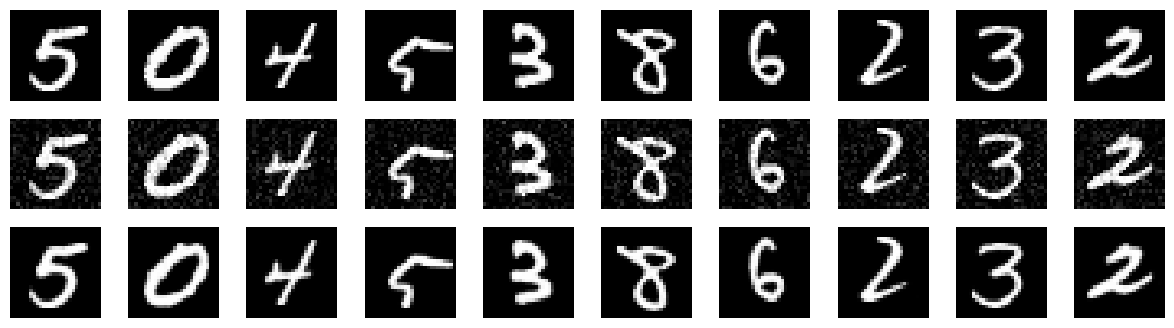 5 0 4 5 3 8 6 2 3 2
5 0 4 5 3 8 6 2 3 2
5 0 4 5 3 8 6 2 3 2